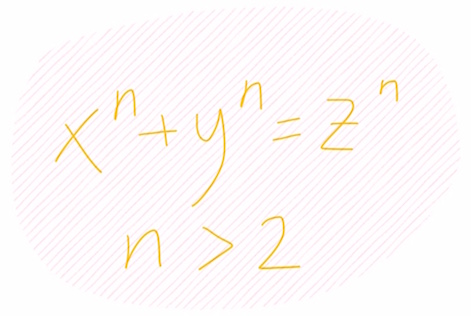 xⁿ + yⁿ = zⁿ
n > 2